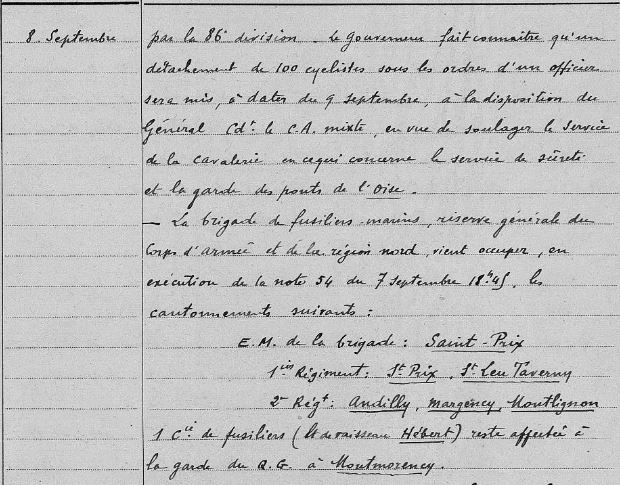 8. Septembre
par la 86e division _ le gouverneur fait connaître qu'un
détachement de 100 cyclistes sous les ordres d'un officier
sera mis, à dater du 9 septembre, à la disposition du
Général Cdt le C.A. mixte, en vue de soulager le service
de la cavalerie en ce qui concerne le service de sûreté
et la garde des ponts de l'Oise.
— La brigade de fusiliers-marins, réserve générale du
Corps d'armée et de la région nord, vient occuper, en
exécution de la note 54 du 7 septembre 18h45, les
cantonnements suivants :
E.M. de la brigade : Saint-Prix
1er Régiment : St Prix, St Leu Taverny
2e Régt : Andilly, Margency, Montlignon
1 Cie de fusiliers (Lt de vaisseau Hébert) reste affectée à
la garde du Q.G. à Montmorency.